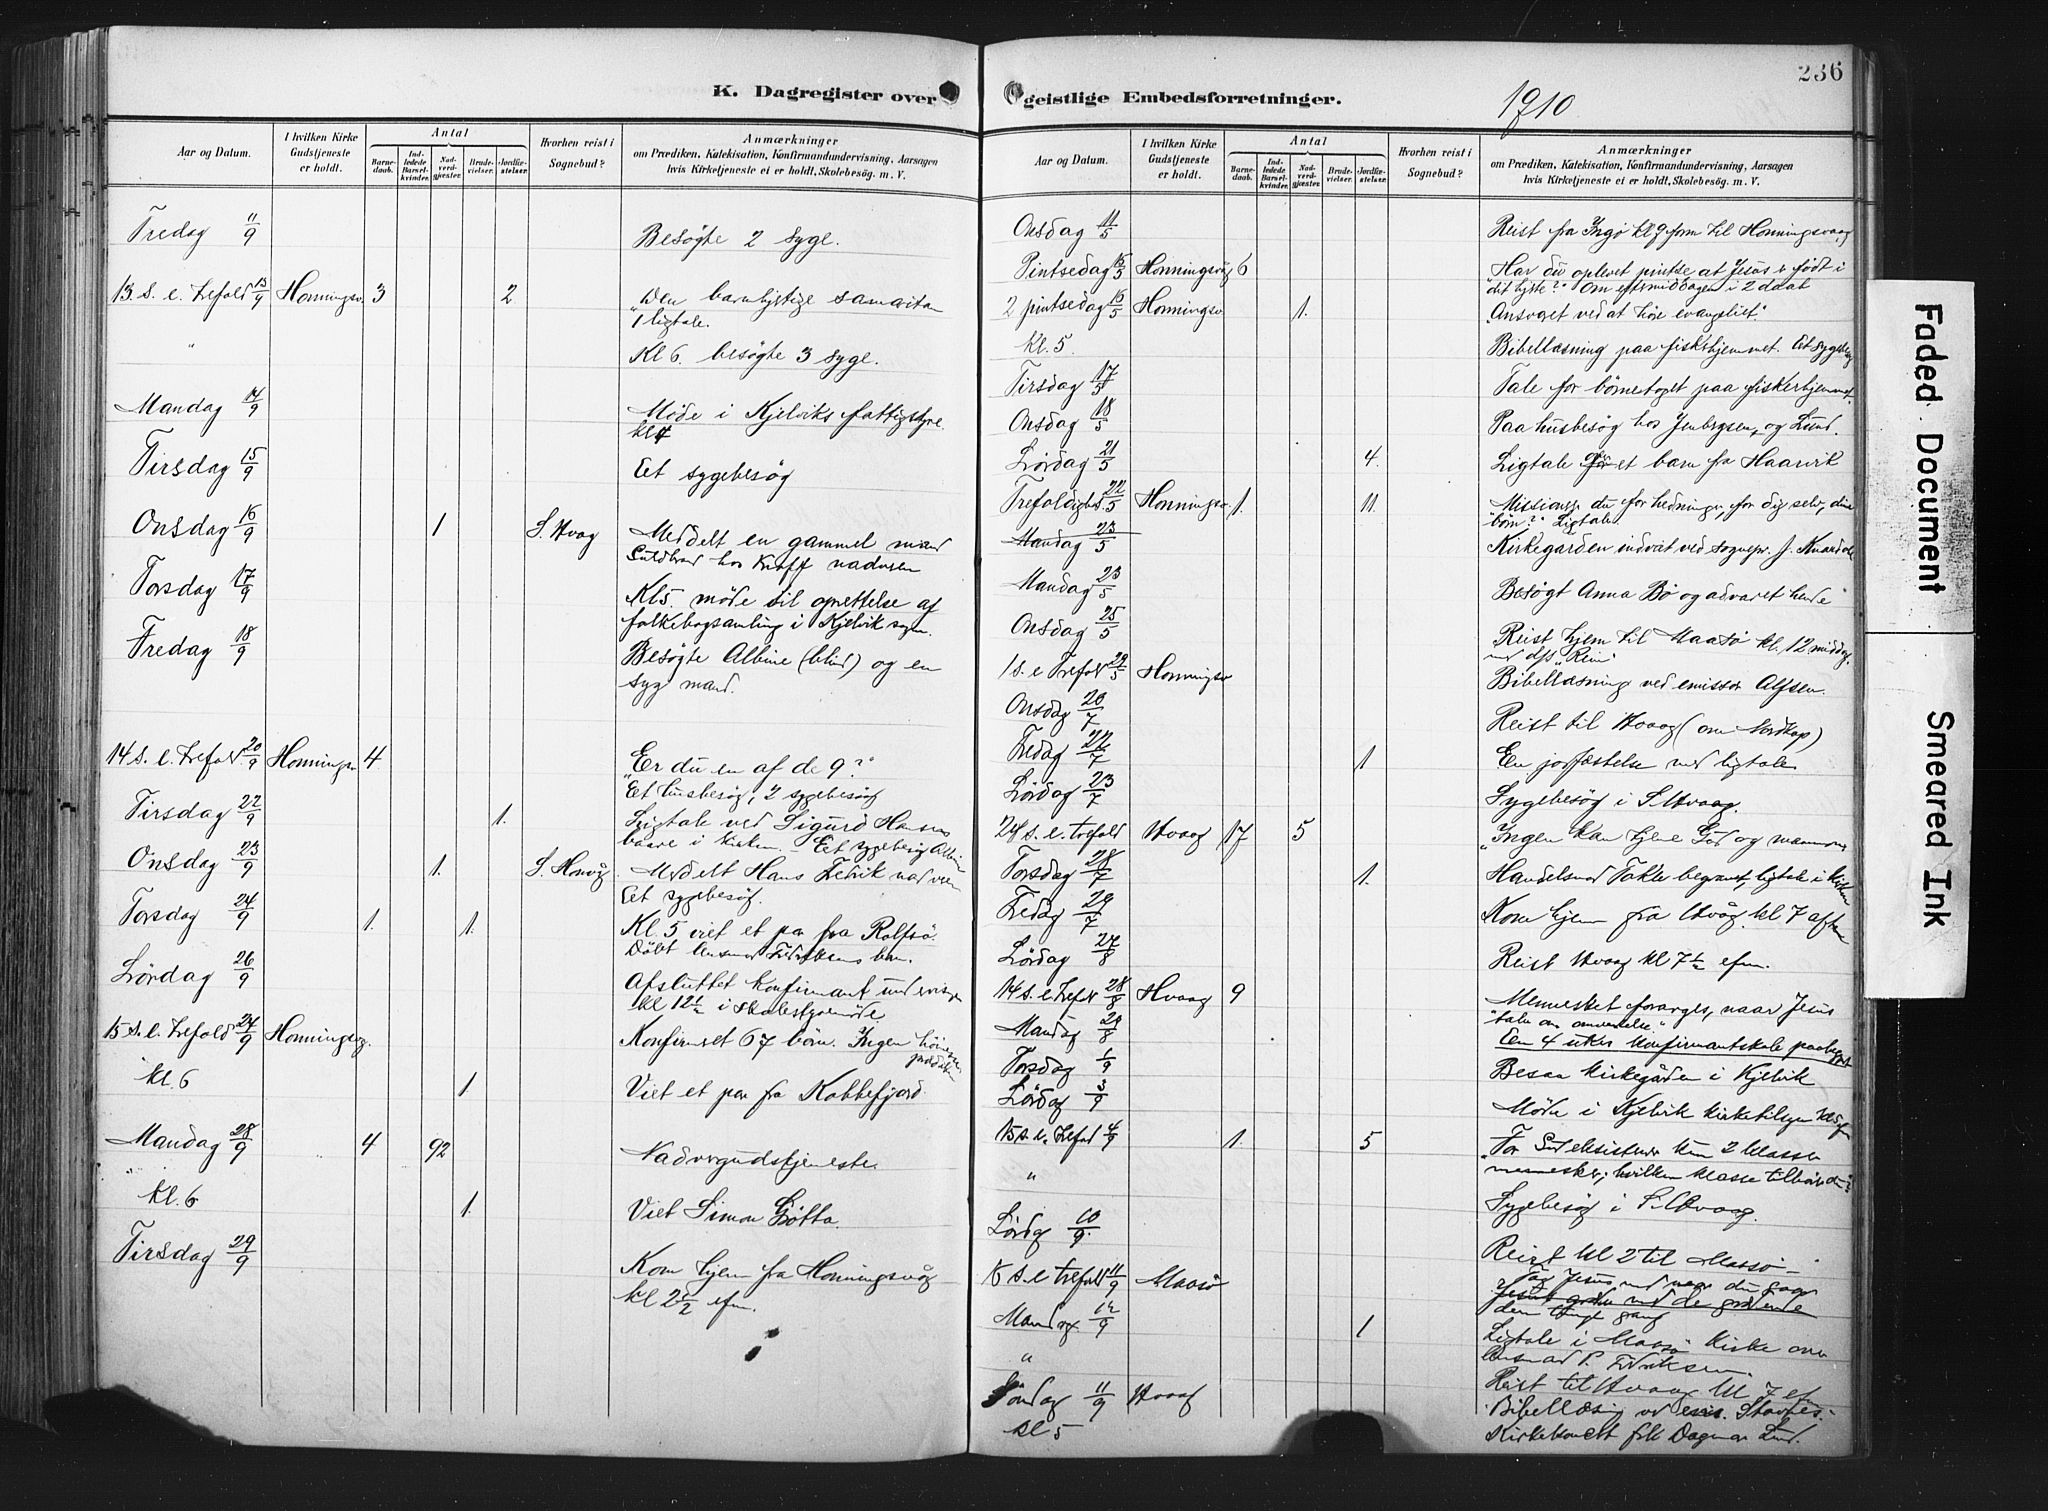 K. Dagregister over
Aar og Datum.
I hvilken Kirke Gudstjeneste er holdt.
Antal
Barnedaab.
Indledede Barselkvinder.
Nadverdgjester.
Brudevielser.
Jordfæstelser.
Hvorhen reist i Sognebud?
Anmærkninger
om Prædiken, Katekisation, Konfirmandundervisning, Aarsagen
hvis Kirketjeneste ei er holdt, Skolebesøg. m. V.
Fredag 11/9 Besøgte 2 syge.
13. s. e. trefold 13/9 Honningsv. 3 2 "Den barmhjertige samaritan
1 ligtale.
" Kl 6. besøgte 3 syge.
Mandag 14/9 Møde i Kjelviks fattigstyre
kl 4
Tirsdag 15/9 Eet sygebesøg
Onsdag 16/9 1 S. Hvag Meddelt en gammel mand
hos nadveren
Torsdag 17/9 Kl 5. møde til oprettelse af
folkebogsamling i Kjelvik sogn.
Fredag 18/9 Besøgte Albine (blind) og en
syg mand.
14 s. e. trefold 20/9 Honningsv 4 "Er du en af de 9?"
Eet husbesøg, 2 sygebesøg
Tirsdag 22/9 1. Ligtale ved Sigurd Hansens
baare i kirken. – Eet sygebesøg Albine
Onsdag 23/9 1. S. Honvåg Meddelt Hans nadveren
Eet sygebesøg.
Torsdag 24/9 1. 1. Kl. 5 viet et par fra Rolfsö.
Döbt barn.
Lördag 26/9 Afsluttet konfirmantundervisning
kl 12½ i
15 s. e. trefold 27/9 Honningsvg. Konfirmeret 67 børn. Ingen
kl. 6 1 Viet et par fra Kobbefjord.
Mandag 28/9 4 92 Nadvergudstjeneste.
" kl. 6 1. Viet Simon Gjøtta.
Tirsdag 29/9 Kom hjem fra Honningsvåg
kl 2½ efm.
geistlige Embedsforretninger.
1910
236
Aar og Datum.
I hvilken Kirke Gudstjeneste er holdt.
Antal
Barnedaab.
Indledede Barselkvinder.
Nadverdgjester.
Brudevielser.
Jordfæstelser.
Hvorhen reist i Sognebud?
Anmærkninger
om Prædiken, Katekisation, Konfirmandundervisning, Aarsagen
hvis Kirketjeneste ei er holdt, Skolebesøg. m. V.
Onsdag 11/5 Reist fra Ingø kl 9 form til Honningsvaag
Pintsedag 15/5 Honningsvåg 6 Har du oplevet pintse at Jesus er født i
dit hjerte?" Om eftermiddagen i 2 daab
2 pintsedag 16/5 Honningsv 1. "Ansvaret ved at høre evangeliet".
kl. 5. Bibellæsning paa fiskerhjemmet. Eet sygebesøg
Tirsdag 17/5 Tale for börnetoget paa fiskerhjemmet.
Onsdag 18/5 Paa husbesøg hos og Lund.
Lördag 21/5 4. Ligtale over et barn fra Haarvik
Trefoldighed 22/5 Honningsv. 1. 11. Missionsp. du for hedninge, for dig selv, dine
børn?" Ligtale
Mandag 23/5 Kirkegarden indviet ved sognepr. J. Kvardal
Mandag 23/5 Besøgt Anna Bø og advaret hende
Onsdag 25/5 Reist hjem til Maasø kl. 12 middag.
med d/s "Rein"
1 s. e Trefold 29/5 Honningsv Bibellæsning ved emissær Alfsen.
Onsdag 20/7 Reist til Hvaag (om Nordkap)
Fredag 22/7 1 En jorfæstelse med ligtale
Lördag 23/7 Sygebesøg i S. Hvaag.
24 s. e. trefold Hvaag 17 5 "Ingen kan tjene Gud og mammon
Torsdag 28/7 1. Handelsmand begravet, ligtale i kirken
Fredag 29/7 Kom hjem fra Hvåg. kl 7 aften
Lördag 27/8 Reist Hvaag kl 7½ efm.
14 s. e. trefol 28/8 Hvaag 9 Mennesket forarges, naar Jesus
taler om omvendelse."
Mandag 29/8 Den 4 ukes konfirmantskole paabegynt
Torsdag 1/9 Besaa kirkegården i Kjelvik
Lördag 3/9 Møde i Kjelvik kirketilsyn kl 5
15 s. e. trefold 4/9 1. 5 "For Gud eksisterer kun 2 klasser
mennesker; hvilken klasse tilhører du?
" Sygebesøg i S. Hvaag.
Lördag 10/9. Reist kl 2 til Maasø –
16 s. e trefold 11/9 Maasö Tag Jesus med naar du gaar
Jesus græder med de grædende
den tunge gang
Mandag. 12/9 1 Ligtale i Maasø kirke over
P. Fredriksen.
" Reist til Hvaag kl 7 efm
Söndag 11/9 Hvaag Bibellæsning ved emis.
kl 5 Kirkekoncert frk Dagmar Lund.
Faded Document
Smeared Ink